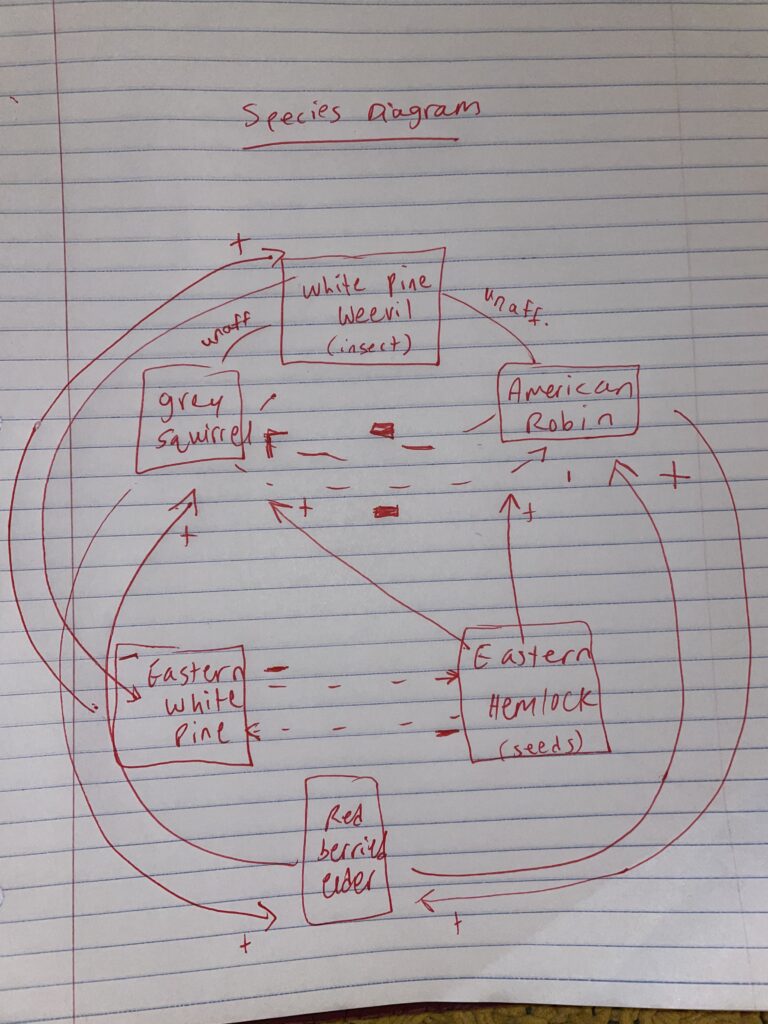 Species Diagram
+
White Pine
Weevil
(insect)
unaff
unaff.
grey
squirrel
American
Robin
-
-
+
+
+
+
Eastern
White
Pine
-
-
-
Eastern
Hemlock
(seeds)
Red
berried
elder
+
+